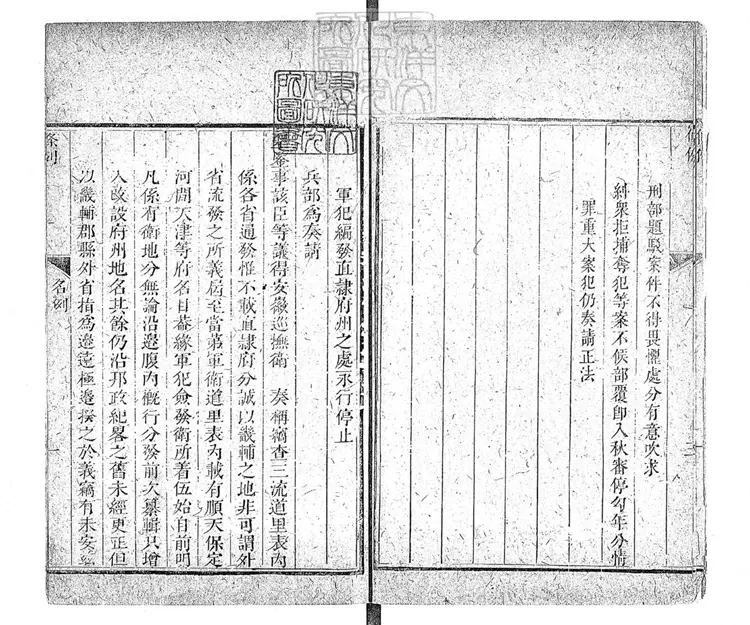 刑部題駁案件不得畏懼處分有意吹求
糾衆拒捕奪犯等案不候部覆卽入秋審停勾年分情
罪重大案犯仍奏請正法
軍犯編發直隷府州之處永行停止
兵部爲奏請
事該臣等議得安徽巡撫衛 奏稱竊查三流道里表內
係各省逓發惟不載直隷府分誠以畿輔之地非可謂外
省流發之所義房至當第軍衛道里表內載有順天保定
河間天津等府名目葢緣軍犯僉發衛所着伍始自前明
凡係有衛地分無論沿邊腹內槪行分發前次纂輯只增
入改設府州地名其餘仍沿邢政紀畧之舊未經更正但
以畿輔郡縣外省指爲邊遠極邊揆之於義竊有未安
名例
東洋文化研究所圖書